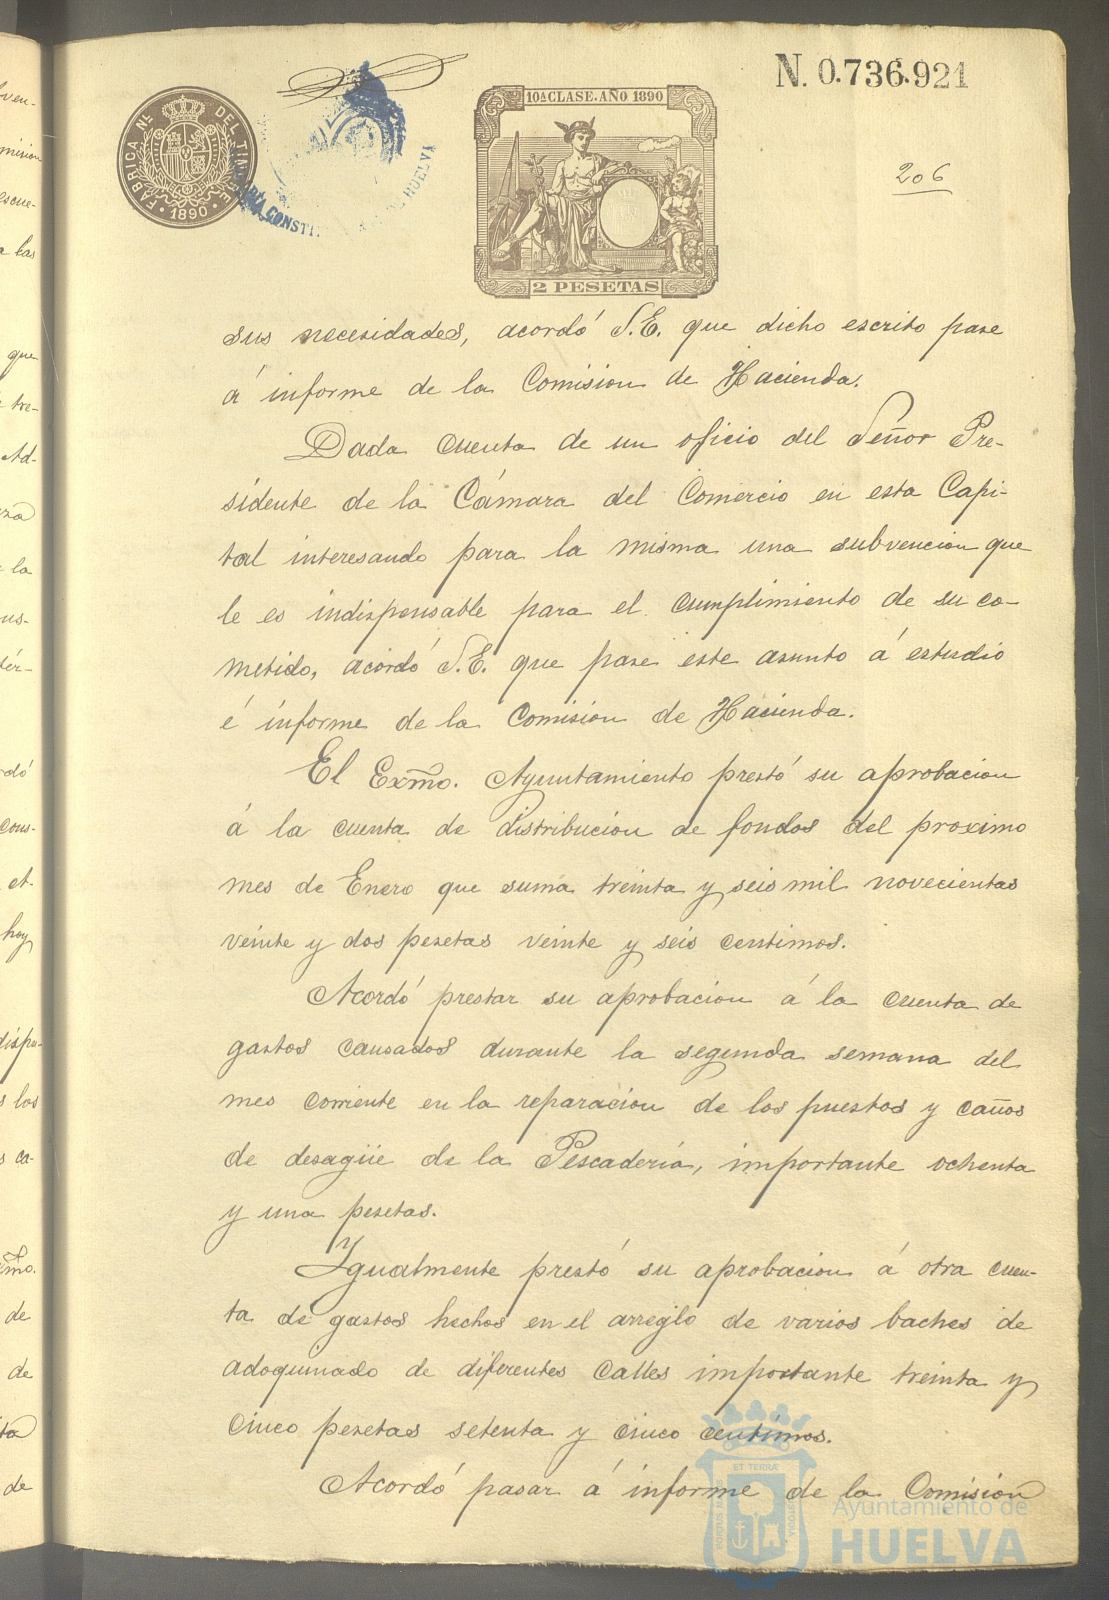 N. 0.736.921
FABRICA NAL. DEL TIMBRE
1890
CONSTI
HUELVA
10ª CLASE. AÑO 1890
2 PESETAS
206
sus necesidades, acordó S.E. que dicho escrito pase
á informe de la Comision de Hacienda.
Dada cuenta de un oficio del Señor Pre-
sidente de la Cámara del Comercio en esta Capi-
tal interesando para la misma una subvencion que
le es indispensable para el cumplimiento de su co-
metido, acordó S.E. que pase este asunto á estudio
é informe de la Comision de Hacienda.
El Exmo. Ayuntamiento prestó su aprobacion
á la cuenta de distribucion de fondos del proximo
mes de Enero que suma treinta y seis mil novecientas
veinte y dos pesetas veinte y seis centimos.
Acordó prestar su aprobacion á la cuenta de
gastos causados durante la segunda semana del
mes corriente en la reparacion de los puestos y caños
de desagüe de la Pescaderia, importante ochenta
y una pesetas.
Igualmente prestó su aprobacion á otra cuen-
ta de gastos hechos en el arreglo de varios baches de
adoquinado de diferentes calles importante treinta y
cinco pesetas setenta y cinco centimos.
Acordó pasar á informe de la Comision
ET TERRA
PORTUS MARIS
CUSTODIA
Ayuntamiento de
HUELVA